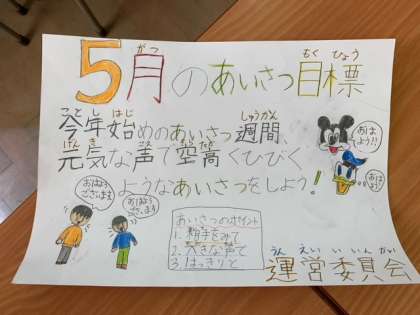 がつ もく ひょう
5月のあいさつ目標
ことし はじ しゅうかん
今年始めのあいさつ週間、
げんき こえ そらたか
元気な声で空高くひびく
ようなあいさつをしよう!
おはよう!!
おはよう!
おはようございます
おはようございます
あいさつのポイント
1. 相手をみて
2. 大きな声で
3. はっきりと
うん えい い いん かい
運営委員会